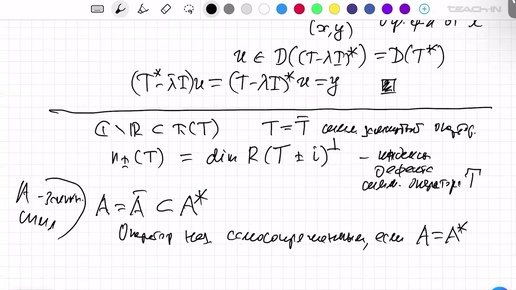 TEACH-IN
(x,y)
u ∈ D((T-λI)*) = D(T*)
(T*-λ̄I)u = (T-λI)*u = y
ℂ \ ℝ ⊂ π(T) T = T̄ симм. замкнутый оператор.
n±(T) = dim R(T ± i)^⊥ - индексы
дефекта
симм. оператора T
A - замкн.
симм
A = Ā ⊂ A*
Оператор наз самосопряженным, если A = A*